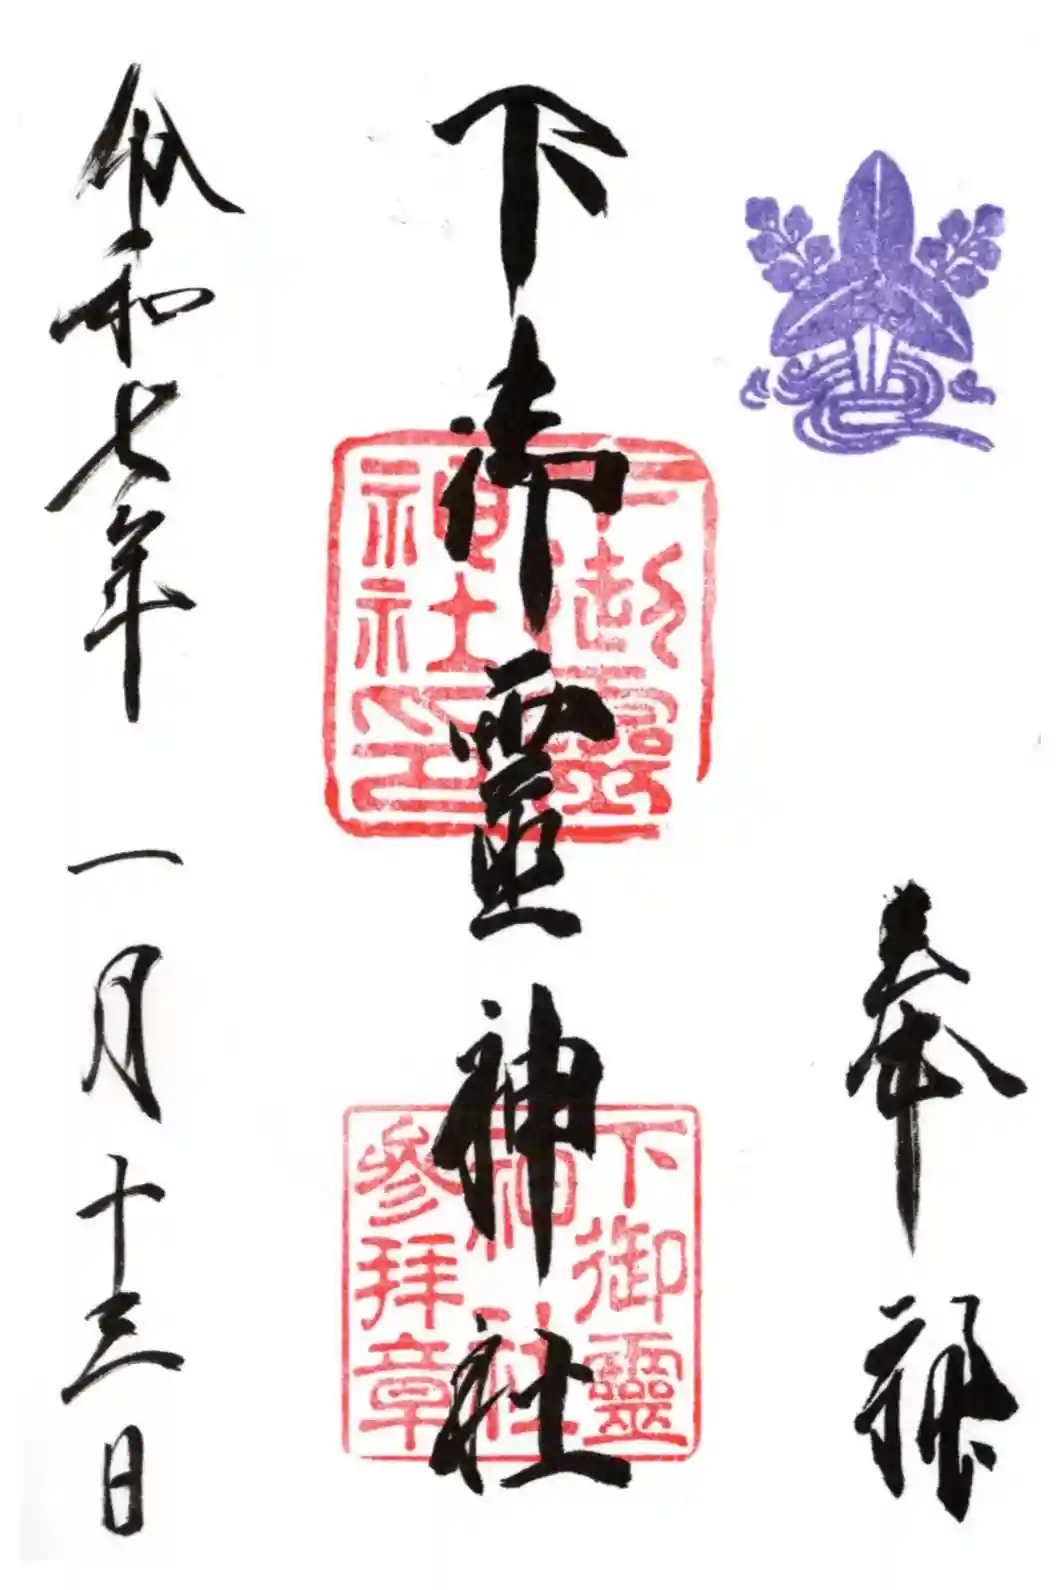 奉拝
下御靈神社
下御靈
神社印
下御靈
神社
參拜章
令和七年一月十三日